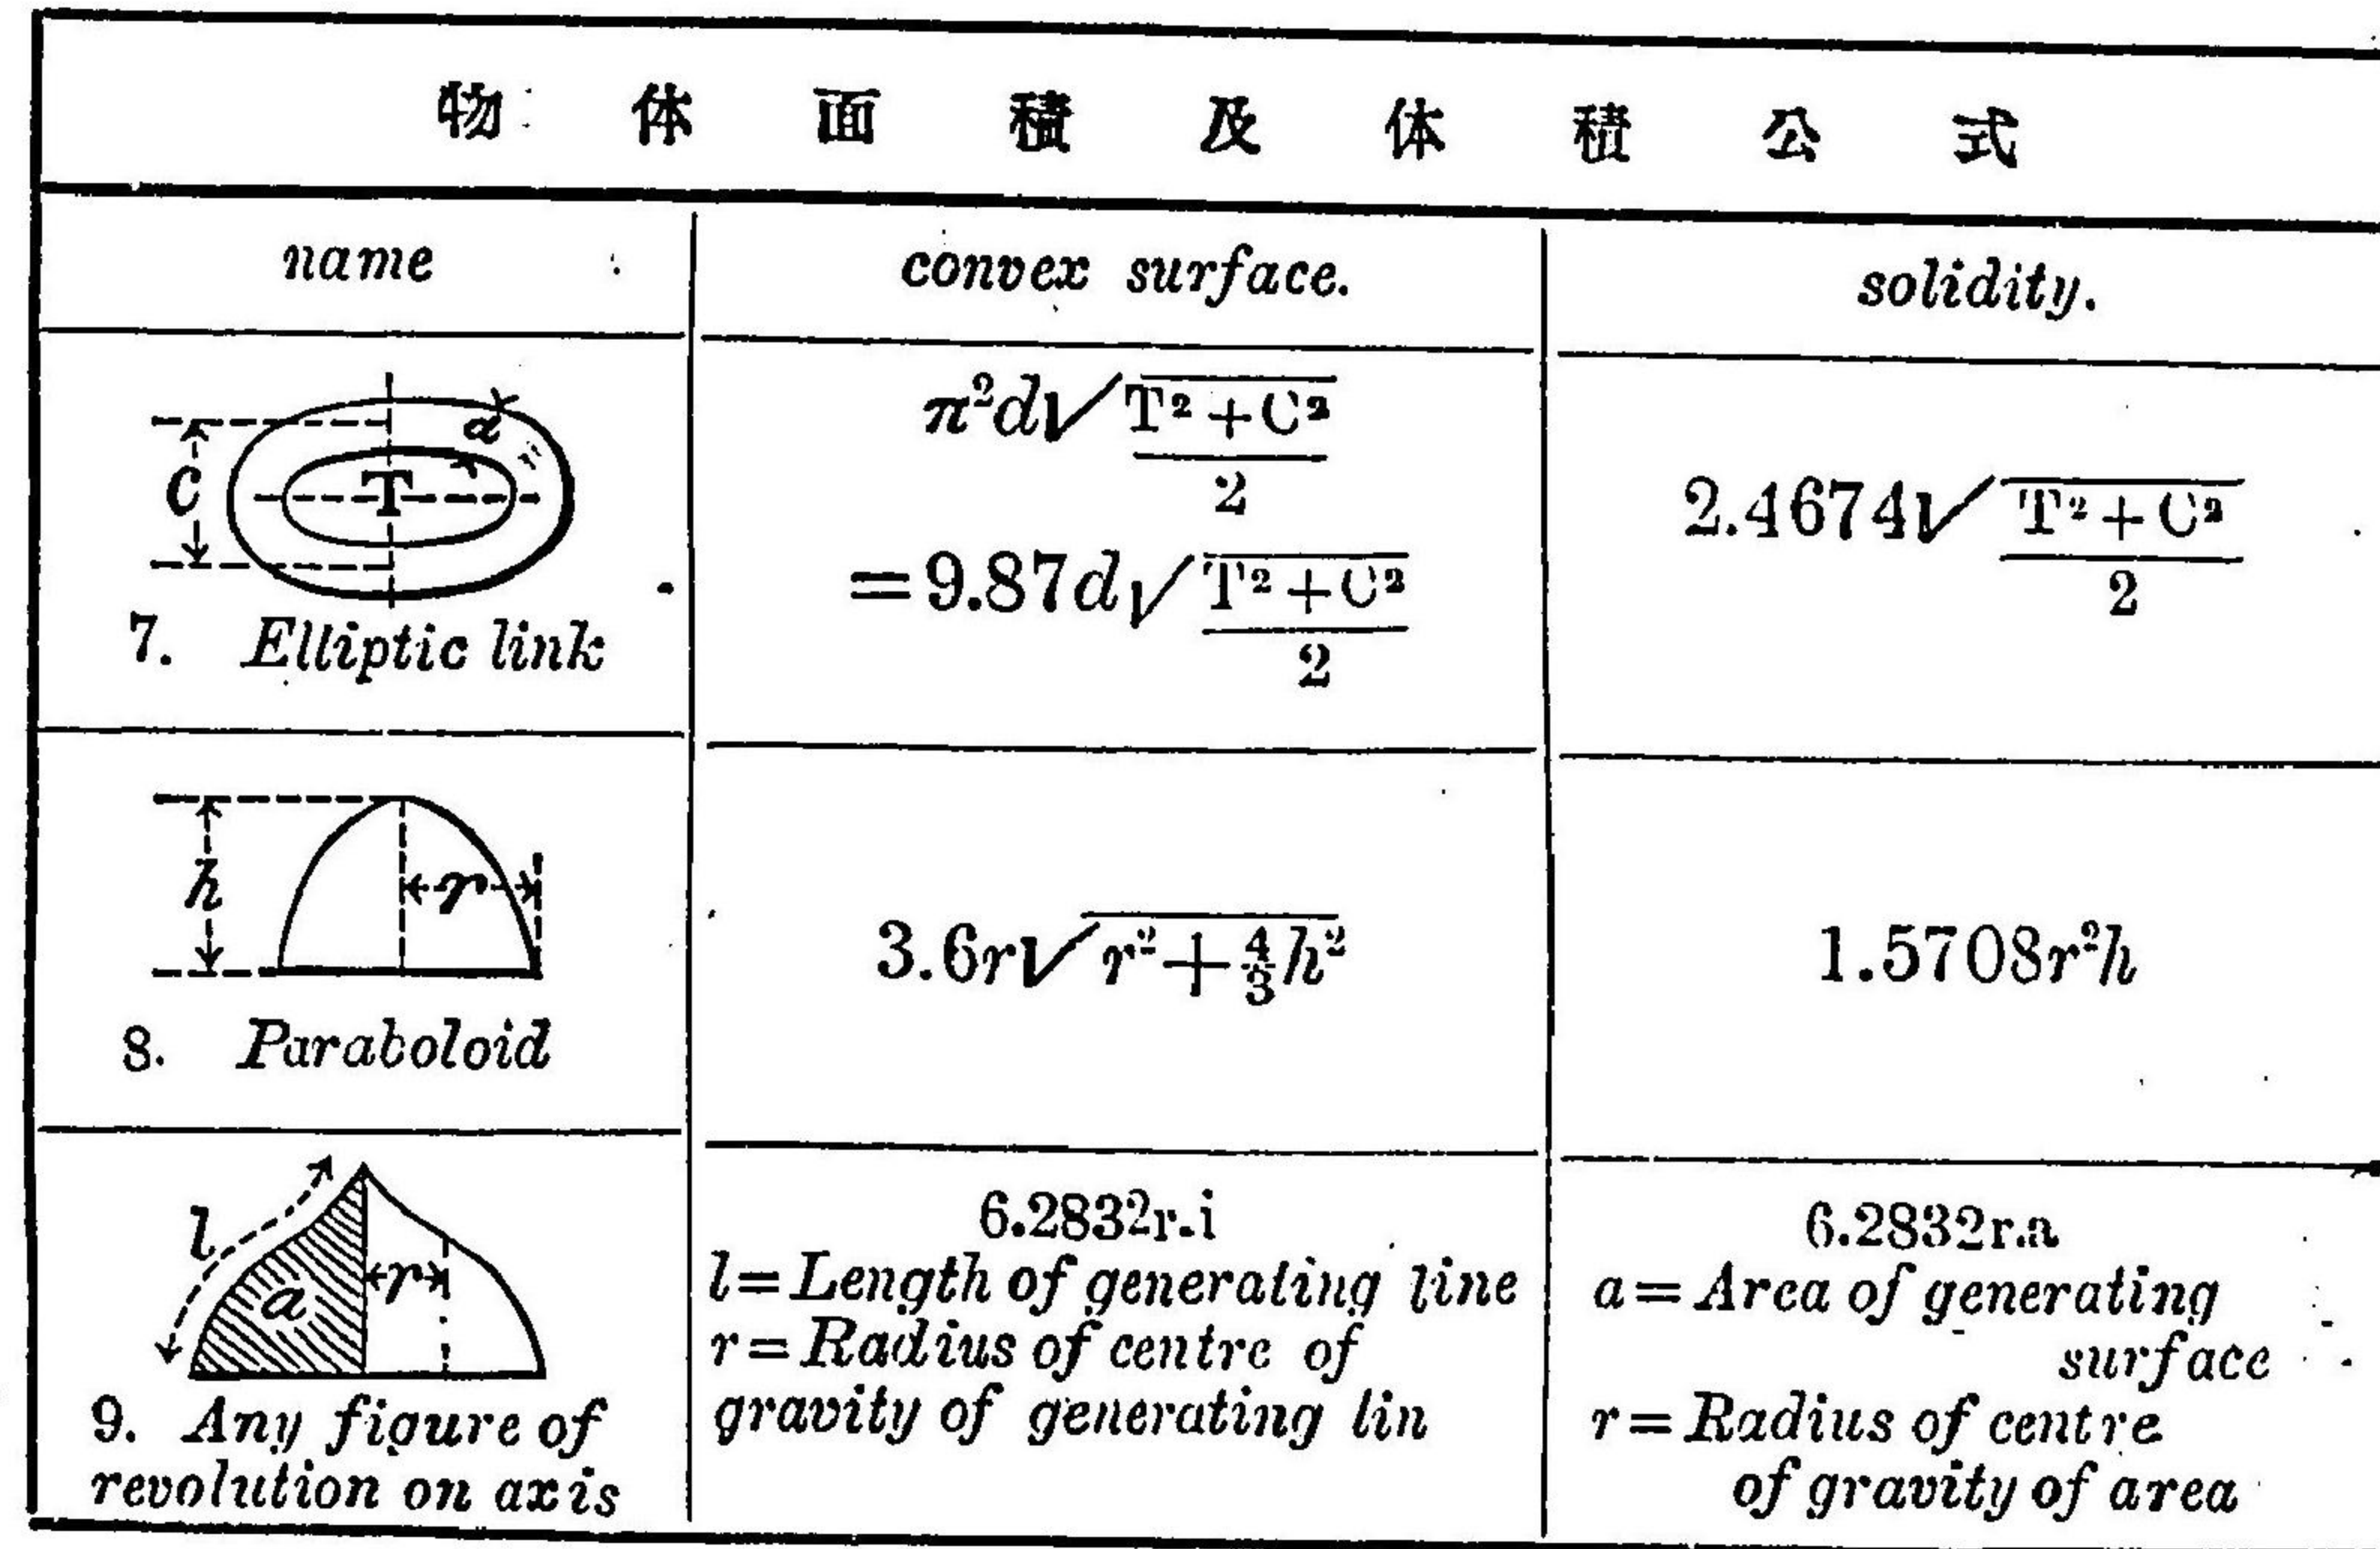 物体面積及体積公式
name
convex surface.
solidity.
C
T
d
7. Elliptic link
π²d√(T²+C²)/2
=9.87d√(T²+C²)/2
2.4674√(T²+C²)/2
h
r
8. Paraboloid
3.6r√r²+4/3h²
1.5708r²h
l
a
r
9. Any figure of
revolution on axis
6.2832r.i
l=Length of generating line
r=Radius of centre of
gravity of generating lin
6.2832r.a
a=Area of generating
surface
r=Radius of centre
of gravity of area